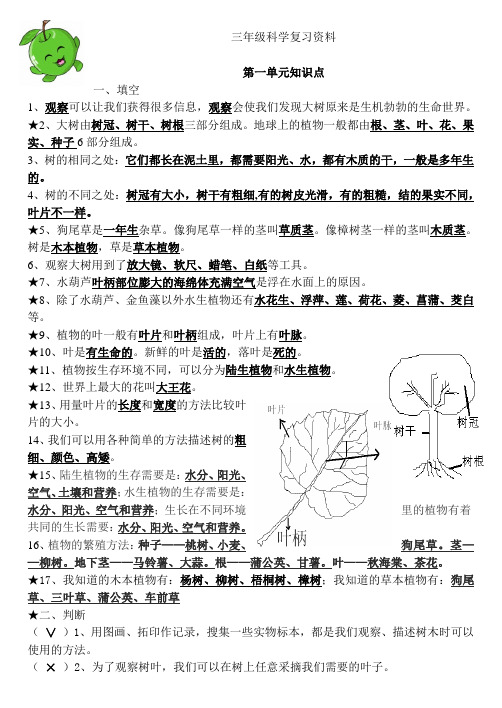 三年级科学复习资料
第一单元知识点
一、填空
1、观察可以让我们获得很多信息，观察会使我们发现大树原来是生机勃勃的生命世界。
★2、大树由树冠、树干、树根三部分组成。地球上的植物一般都由根、茎、叶、花、果
实、种子6部分组成。
3、树的相同之处：它们都长在泥土里，都需要阳光、水，都有木质的干，一般是多年生
的。
4、树的不同之处：树冠有大小，树干有粗细,有的树皮光滑，有的粗糙，结的果实不同，
叶片不一样。
★5、狗尾草是一年生杂草。像狗尾草一样的茎叫草质茎。像樟树茎一样的茎叫木质茎。
树是木本植物，草是草本植物。
6、观察大树用到了放大镜、软尺、蜡笔、白纸等工具。
★7、水葫芦叶柄部位膨大的海绵体充满空气是浮在水面上的原因。
★8、除了水葫芦、金鱼藻以外水生植物还有水花生、浮萍、莲、荷花、菱、菖蒲、茭白
等。
★9、植物的叶一般有叶片和叶柄组成，叶片上有叶脉。
★10、叶是有生命的。新鲜的叶是活的，落叶是死的。
★11、植物按生存环境不同，可以分为陆生植物和水生植物。
★12、世界上最大的花叫大王花。
★13、用量叶片的长度和宽度的方法比较叶
片的大小。
14、我们可以用各种简单的方法描述树的粗
细、颜色、高矮。
★15、陆生植物的生存需要是：水分、阳光、
空气、土壤和营养；水生植物的生存需要是：
水分、阳光、空气和营养；生长在不同环境里的植物有着
共同的生长需要：水分、阳光、空气和营养。
16、植物的繁殖方法：种子——桃树、小麦、狗尾草。茎—
—柳树。地下茎——马铃薯、大蒜。根——蒲公英、甘薯。叶——秋海棠、茶花。
★17、我知道的木本植物有：杨树、柳树、梧桐树、樟树；我知道的草本植物有：狗尾
草、三叶草、蒲公英、车前草
叶片
叶脉
叶柄
树冠
树干
树根
★二、判断
（ ∨ ）1、用图画、拓印作记录，搜集一些实物标本，都是我们观察、描述树木时可以
使用的方法。
（ × ）2、为了观察树叶，我们可以在树上任意采摘我们需要的叶子。